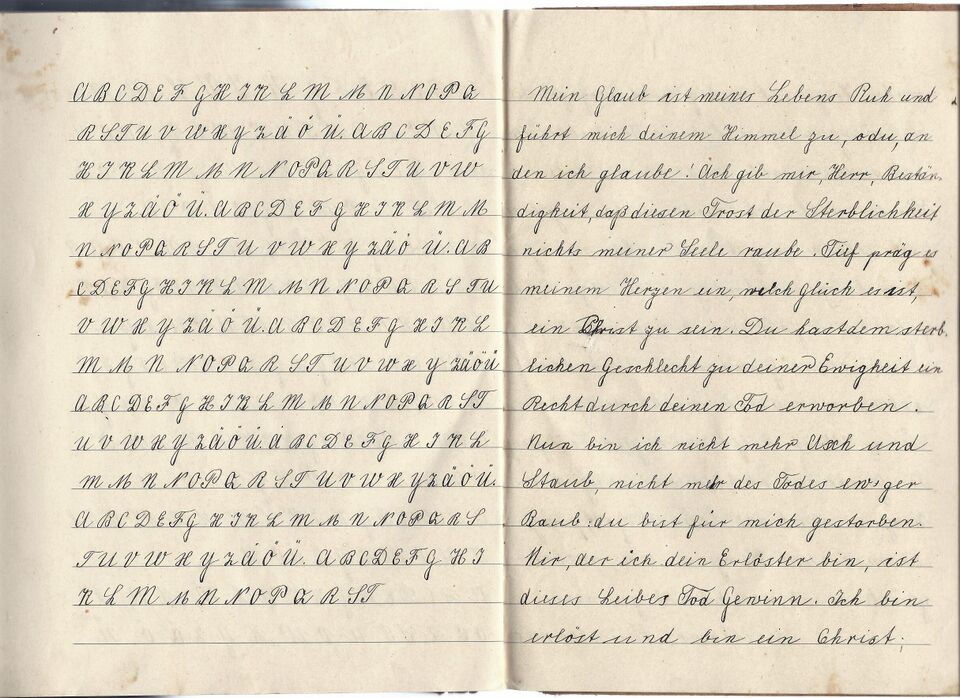 A B C D E F G H I K L M M N N O P Q
R S T U V W X Y Z Ä Ö Ü. A B C D E F G
H I K L M M N N O P Q R S T U V W
X Y Z Ä Ö Ü. A B C D E F G H I K L M M
N N O P Q R S T U V W X Y Z Ä Ö Ü. A B
C D E F G H I K L M M N N O P Q R S T U
V W X Y Z Ä Ö Ü. A B C D E F G H I K L
M M N N O P Q R S T U V W X Y Z Ä Ö Ü
A B C D E F G H I K L M M N N O P Q R S T
U V W X Y Z Ä Ö Ü. A B C D E F G H I K L
M M N N O P Q R S T U V W X Y Z Ä Ö Ü.
A B C D E F G H I K L M M N N O P Q R S
T U V W X Y Z Ä Ö Ü. A B C D E F G H I
K L M M N N O P Q R S T
Mein Glaub ist meines Lebens Ruh und
führt mich deinem Himmel zu, o du, an
den ich glaube! Ach gib mir, Herr, Bestän-
digkeit, daß diesen Trost der Sterblichkeit
nichts meiner Seele raube. Tief präg es
meinem Herzen ein, welch Glück es ist,
ein Christ zu sein. Du hast dem sterb-
lichen Geschlecht zu deiner Ewigkeit ein
Recht durch deinen Tod erworben.
Nun bin ich nicht mehr Asch und
Staub, nicht mehr des Todes ew'ger
Raub: du bist für mich gestorben.
Mir, der ich dein Erlöster bin, ist
dieses Leibes Tod Gewinn. Ich bin
erlöst und bin ein Christ;